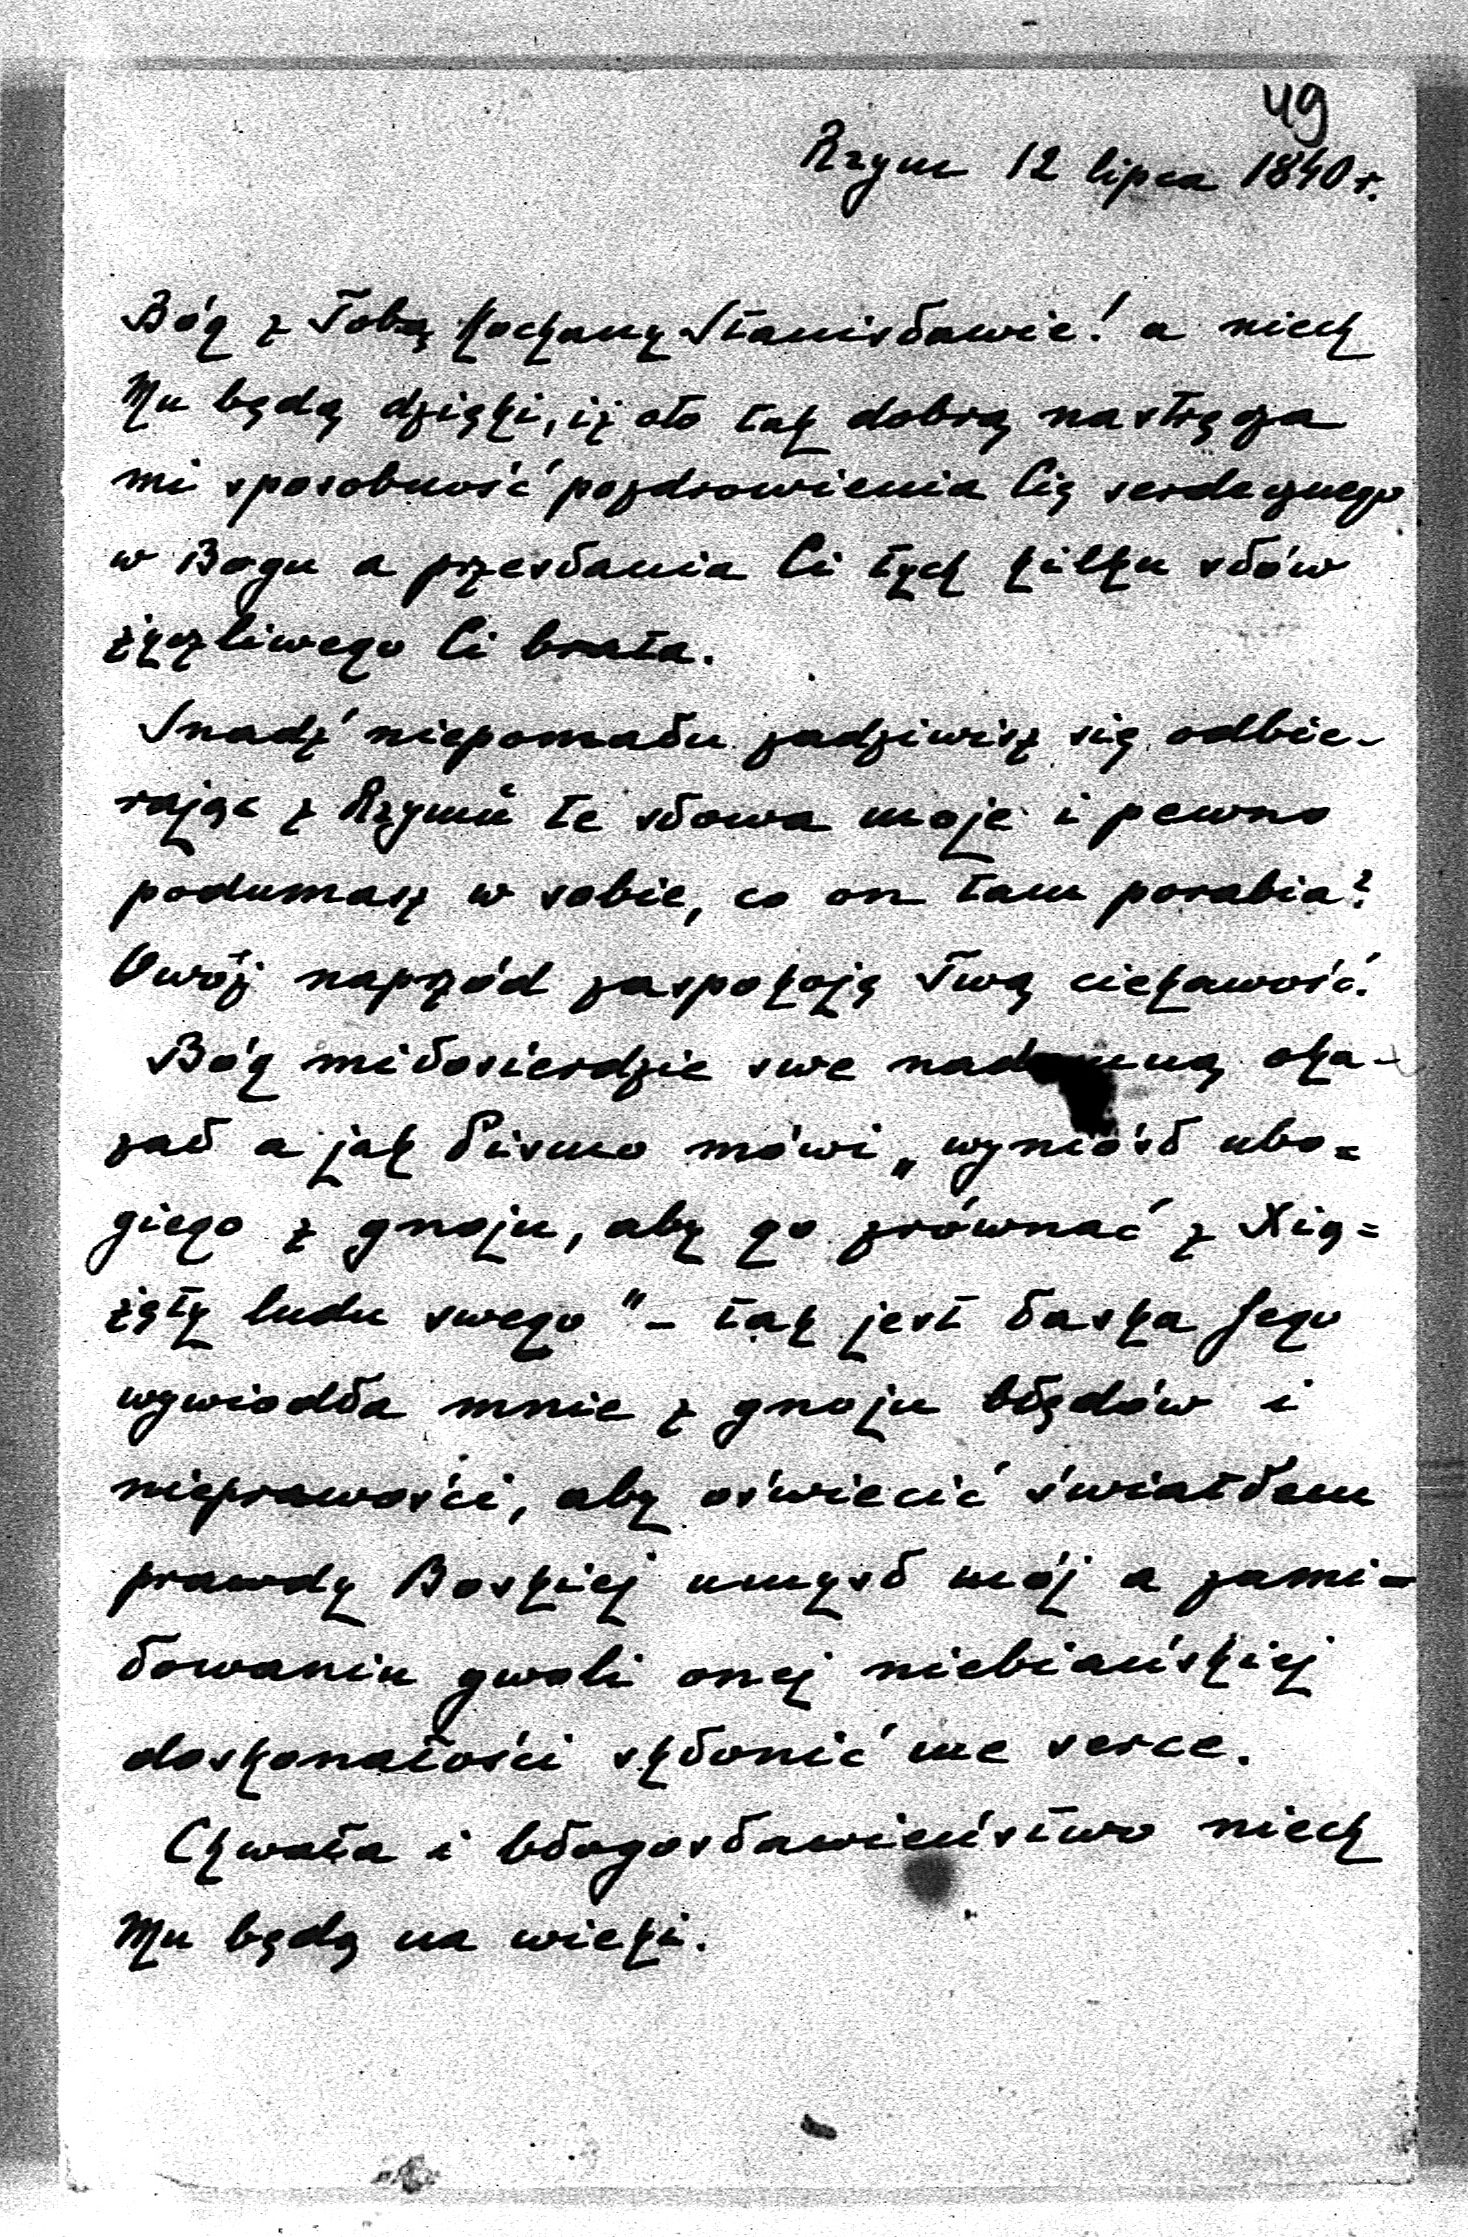 49
Rzym 12 lipca 1840 r.
Bóg z Tobą kochany Stanisławie! a niech
Mu będą dzięki, iż oto tak dobrą nastręcza
mi sposobność pozdrowienia Cię serdecznego
w Bogu a przesłania Ci tych kilku słów
życzliwego Ci brata.
Snadź niepomału zadziwisz się odbie-
rając z Rzymu te słowa moje i pewno
podumasz w sobie, co on tam porabia?
Owóż naprzód zaspokoję Twą ciekawość.
Bóg miłosierdzie swe nad mną oka-
zał a jak Pismo mówi „wyniósł ubo=
giego z gnoju, aby go zrównać z Xią=
żęty ludu swego" - tak jest łaska Jego
wywiodła mnie z gnoju błędów i
nieprawości, aby oświecić światłem
prawdy Boskiej umysł mój a zami=
łowaniu gwoli onej niebiańskiej
doskonałości skłonić me serce.
Chwała i błogosławieństwo niech
Mu będą na wieki.